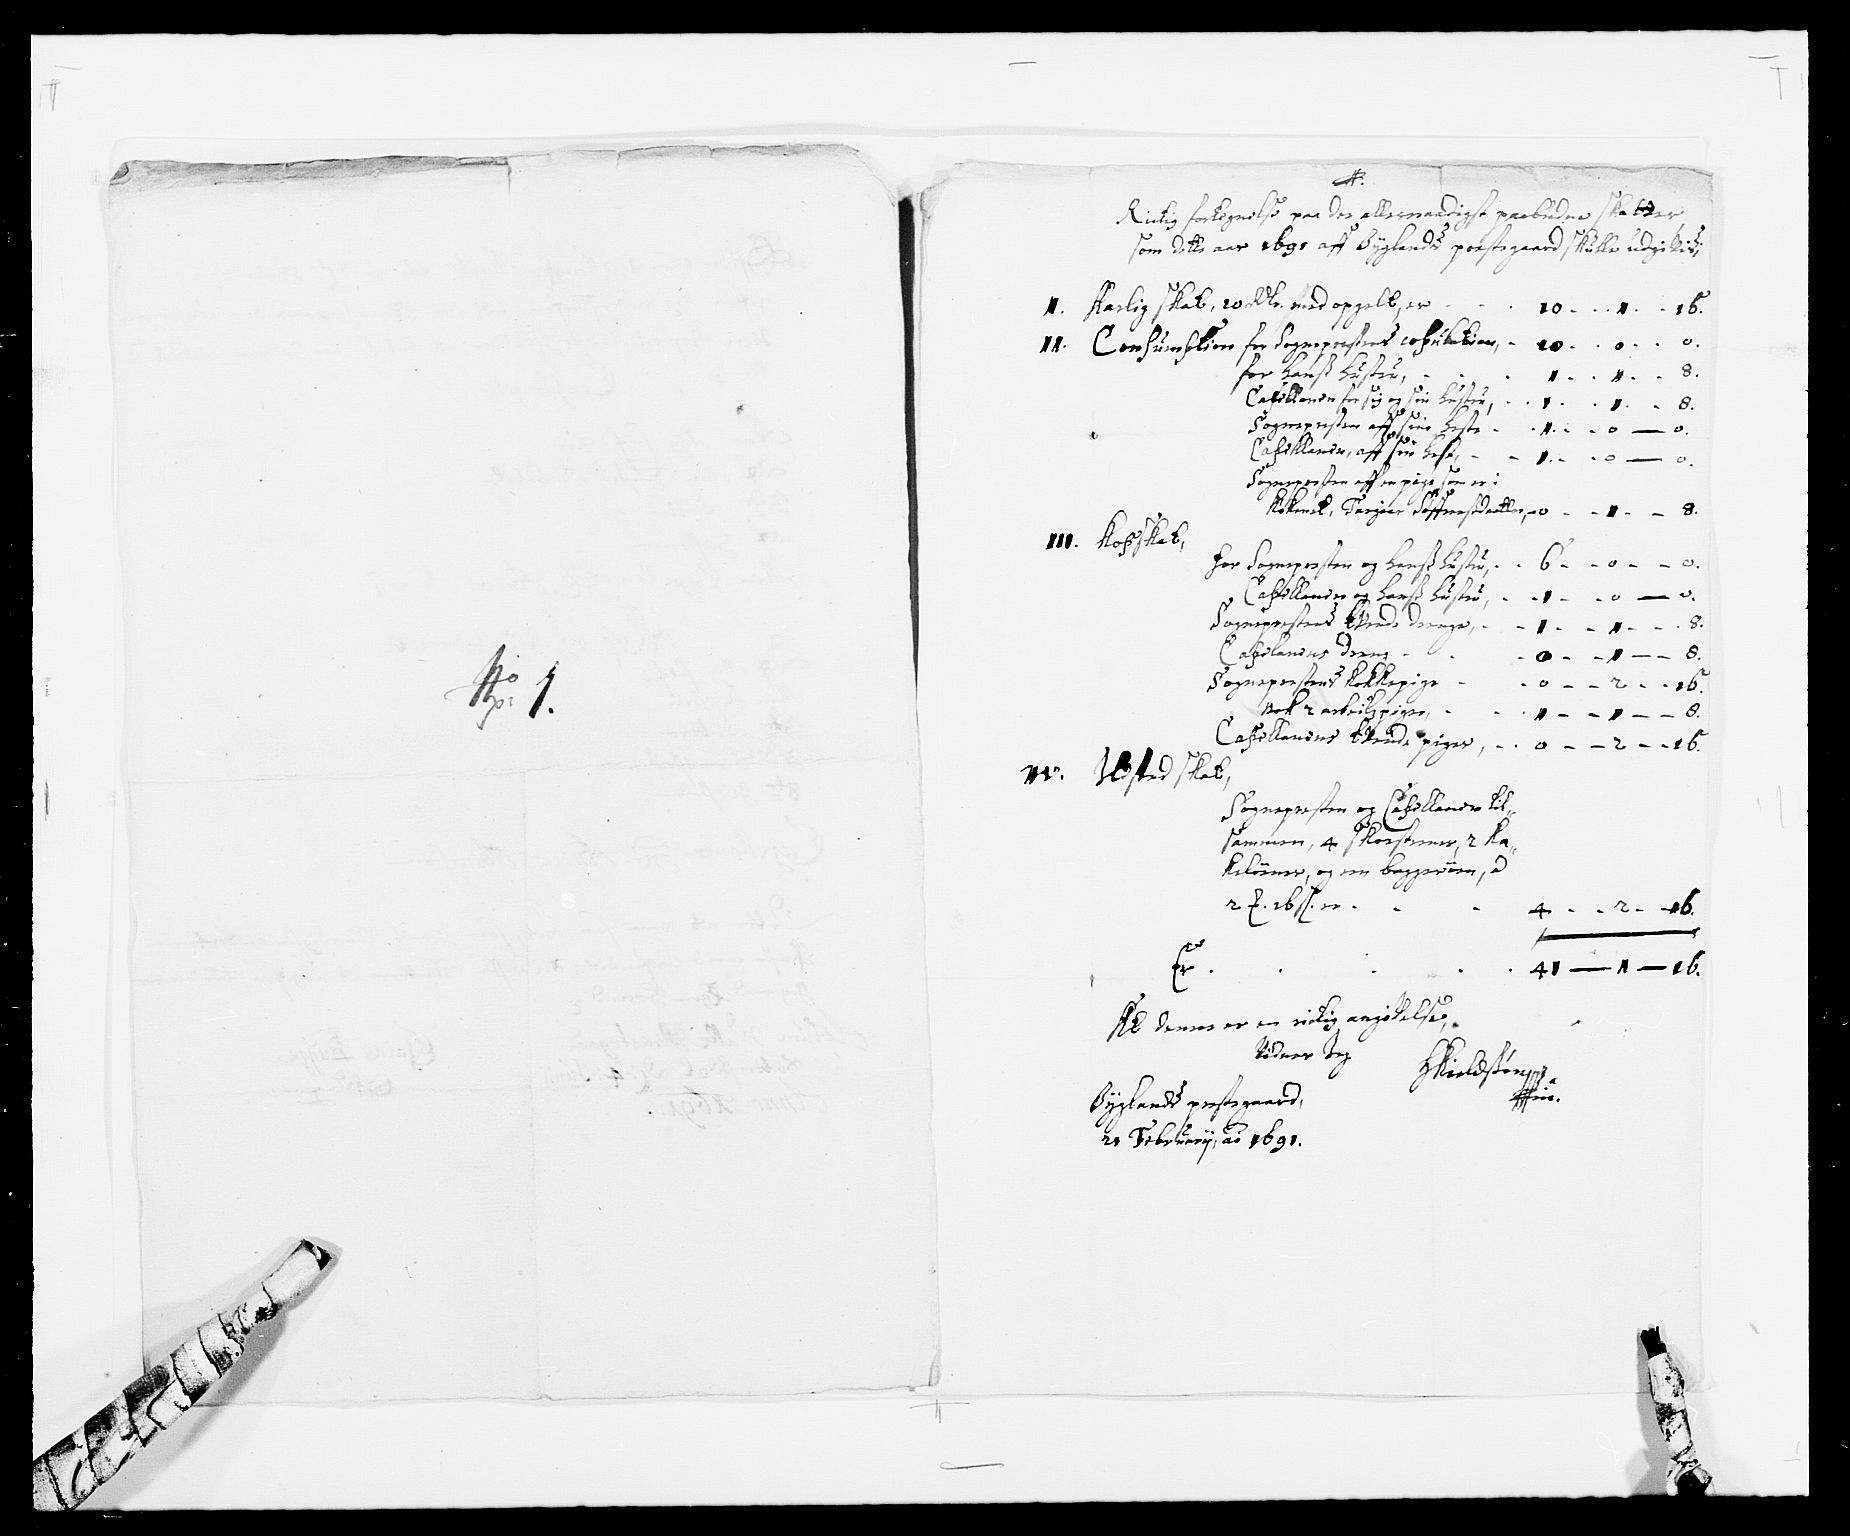 No 1.
A.
Rictig fortegnelse paa de allernaadigst paabudne skatter
som dette aar 1691 aff Byglands prestegaard skulle udgifvis,
I. Aarlig skat, 10 Rdr. med opgelt, er - - - 10 - - 1 - - 16.
II. Consumption for Sogneprestens copulation, - 20 - - 0 - - 0.
for hans hustru, - - - 1 - - 1 - - 8.
Capellanen for sig og sin hustru, - - 1 - - 1 - - 8.
Sognepresten aff sine heste - - 1 - - 0 — 0.
Capellanen, aff sin hest, - - 1 - - 0 — 0.
Sognepresten aff en pige som er i
kokened, Torgier - 0 - - 1 - - 8.
III. Kopskat,
for Sognepresten og hans hustru, - - 6 - - 0 - - 0.
Capellanen og hans hustru, - - 1 - - 0 — 0.
Sogneprestens tvende drenge, - - 1 - - 1 - - 8.
Capellanens dreng - - - 0 - - 1 - - 8.
Sogneprestens kokkepige - - 0 - - 2 - - 16.
Nok 2 arbeidspiger, - - - 1 - - 1 - - 8.
Capellanens tvende piger, - - 0 - - 2 - - 16.
IV. Ildsted skat,
Sognepresten og Capellanen til-
sammen, 4 skorstener, 2 ka-
kelovner, og en baggerovn, a
2 ß. 16 sk. er - - - 4 - - 2 - - 16.
Er . . . . . 41 — 1 — 16.
At denne er en rictig angivelse,
vidner Jeg
HKieldsøn
mppia.
Byglands prestegaard,
21 Februarij, ao 1691.